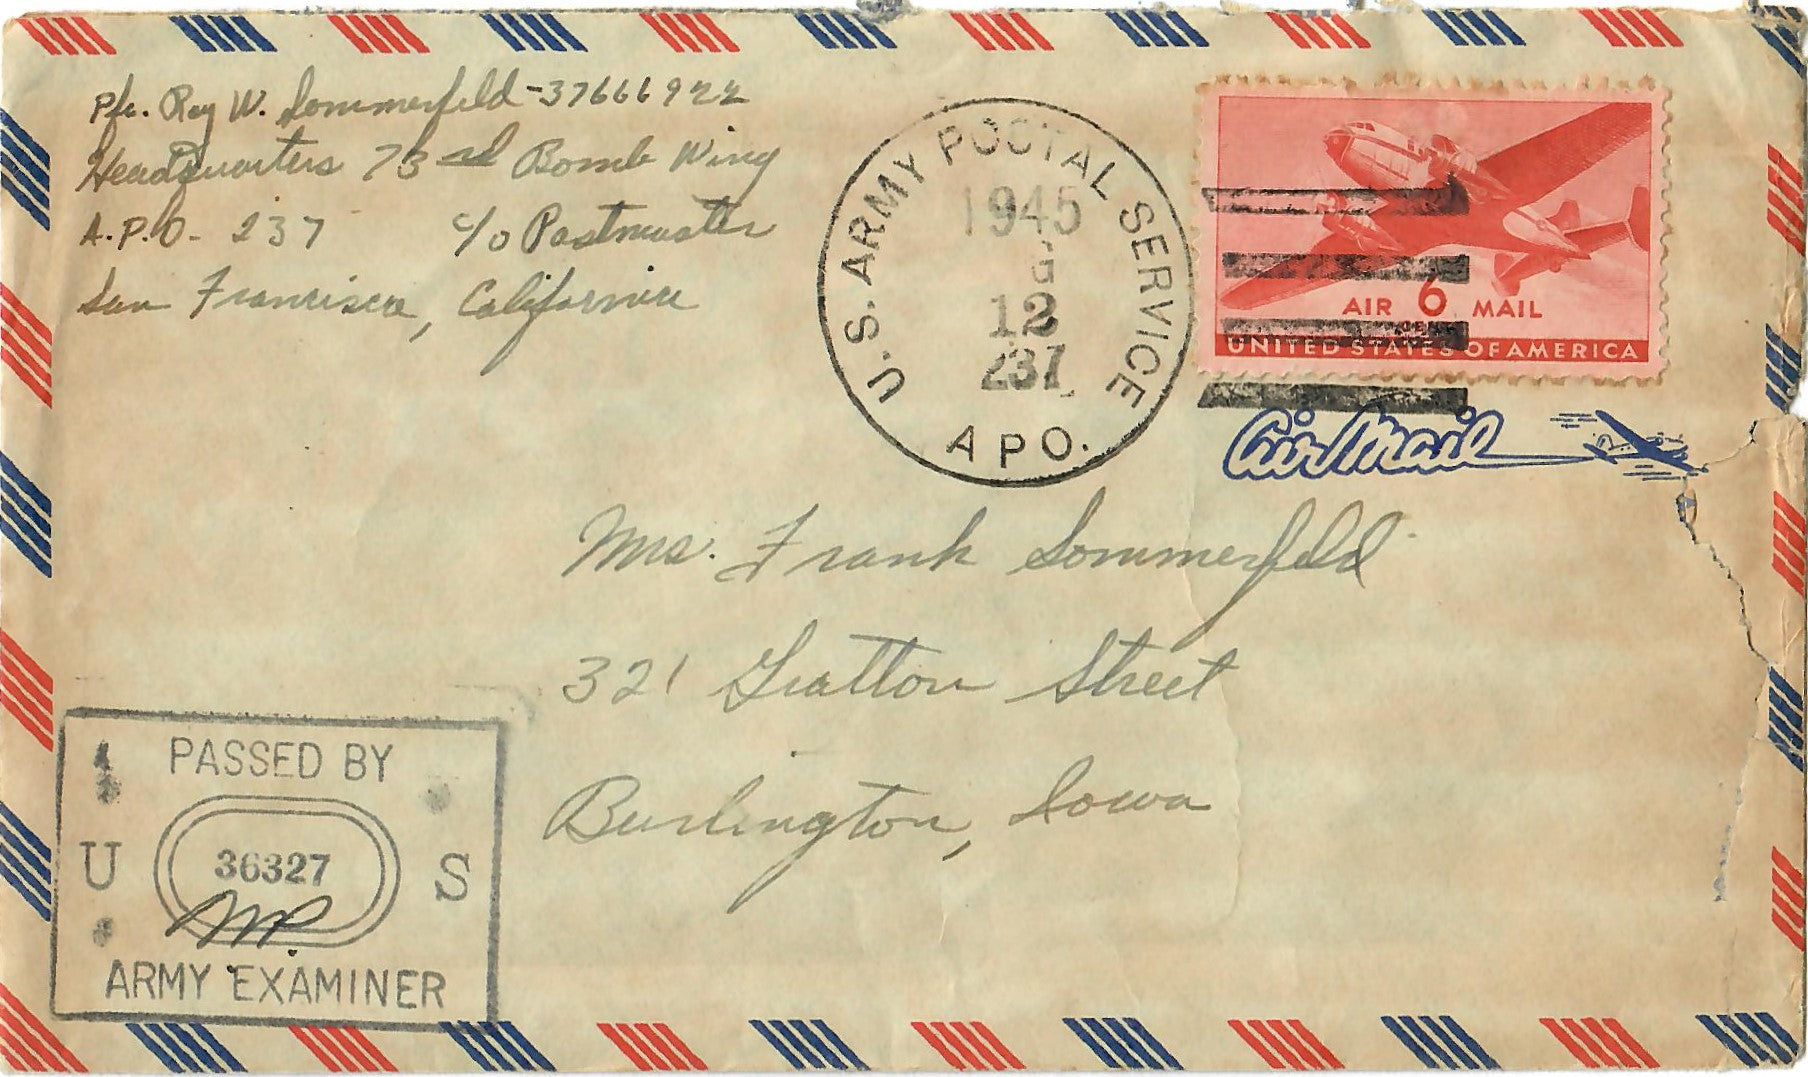 Pfc. Ray W. Sommerfeld - 37666922
Headquarters 73rd Bomb Wing
A.P.O. 237 c/o Postmaster
San Francisco, California
U.S. ARMY POSTAL SERVICE
1945
12
237
A P O.
AIR 6 MAIL
CENTS
UNITED STATES OF AMERICA
Air Mail
Mrs. Frank Sommerfeld
321 Gratton Street
Burlington, Iowa
PASSED BY
U 36327 S
ARMY EXAMINER